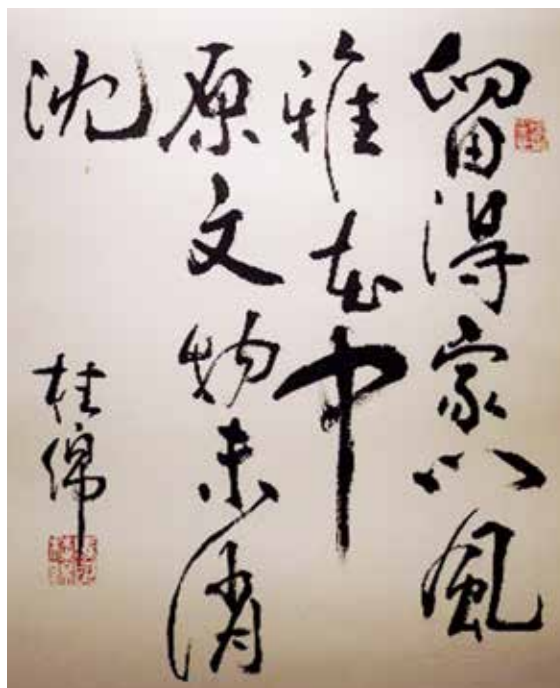 留得家山風
雅在中
原文物未消
沈
桂綿